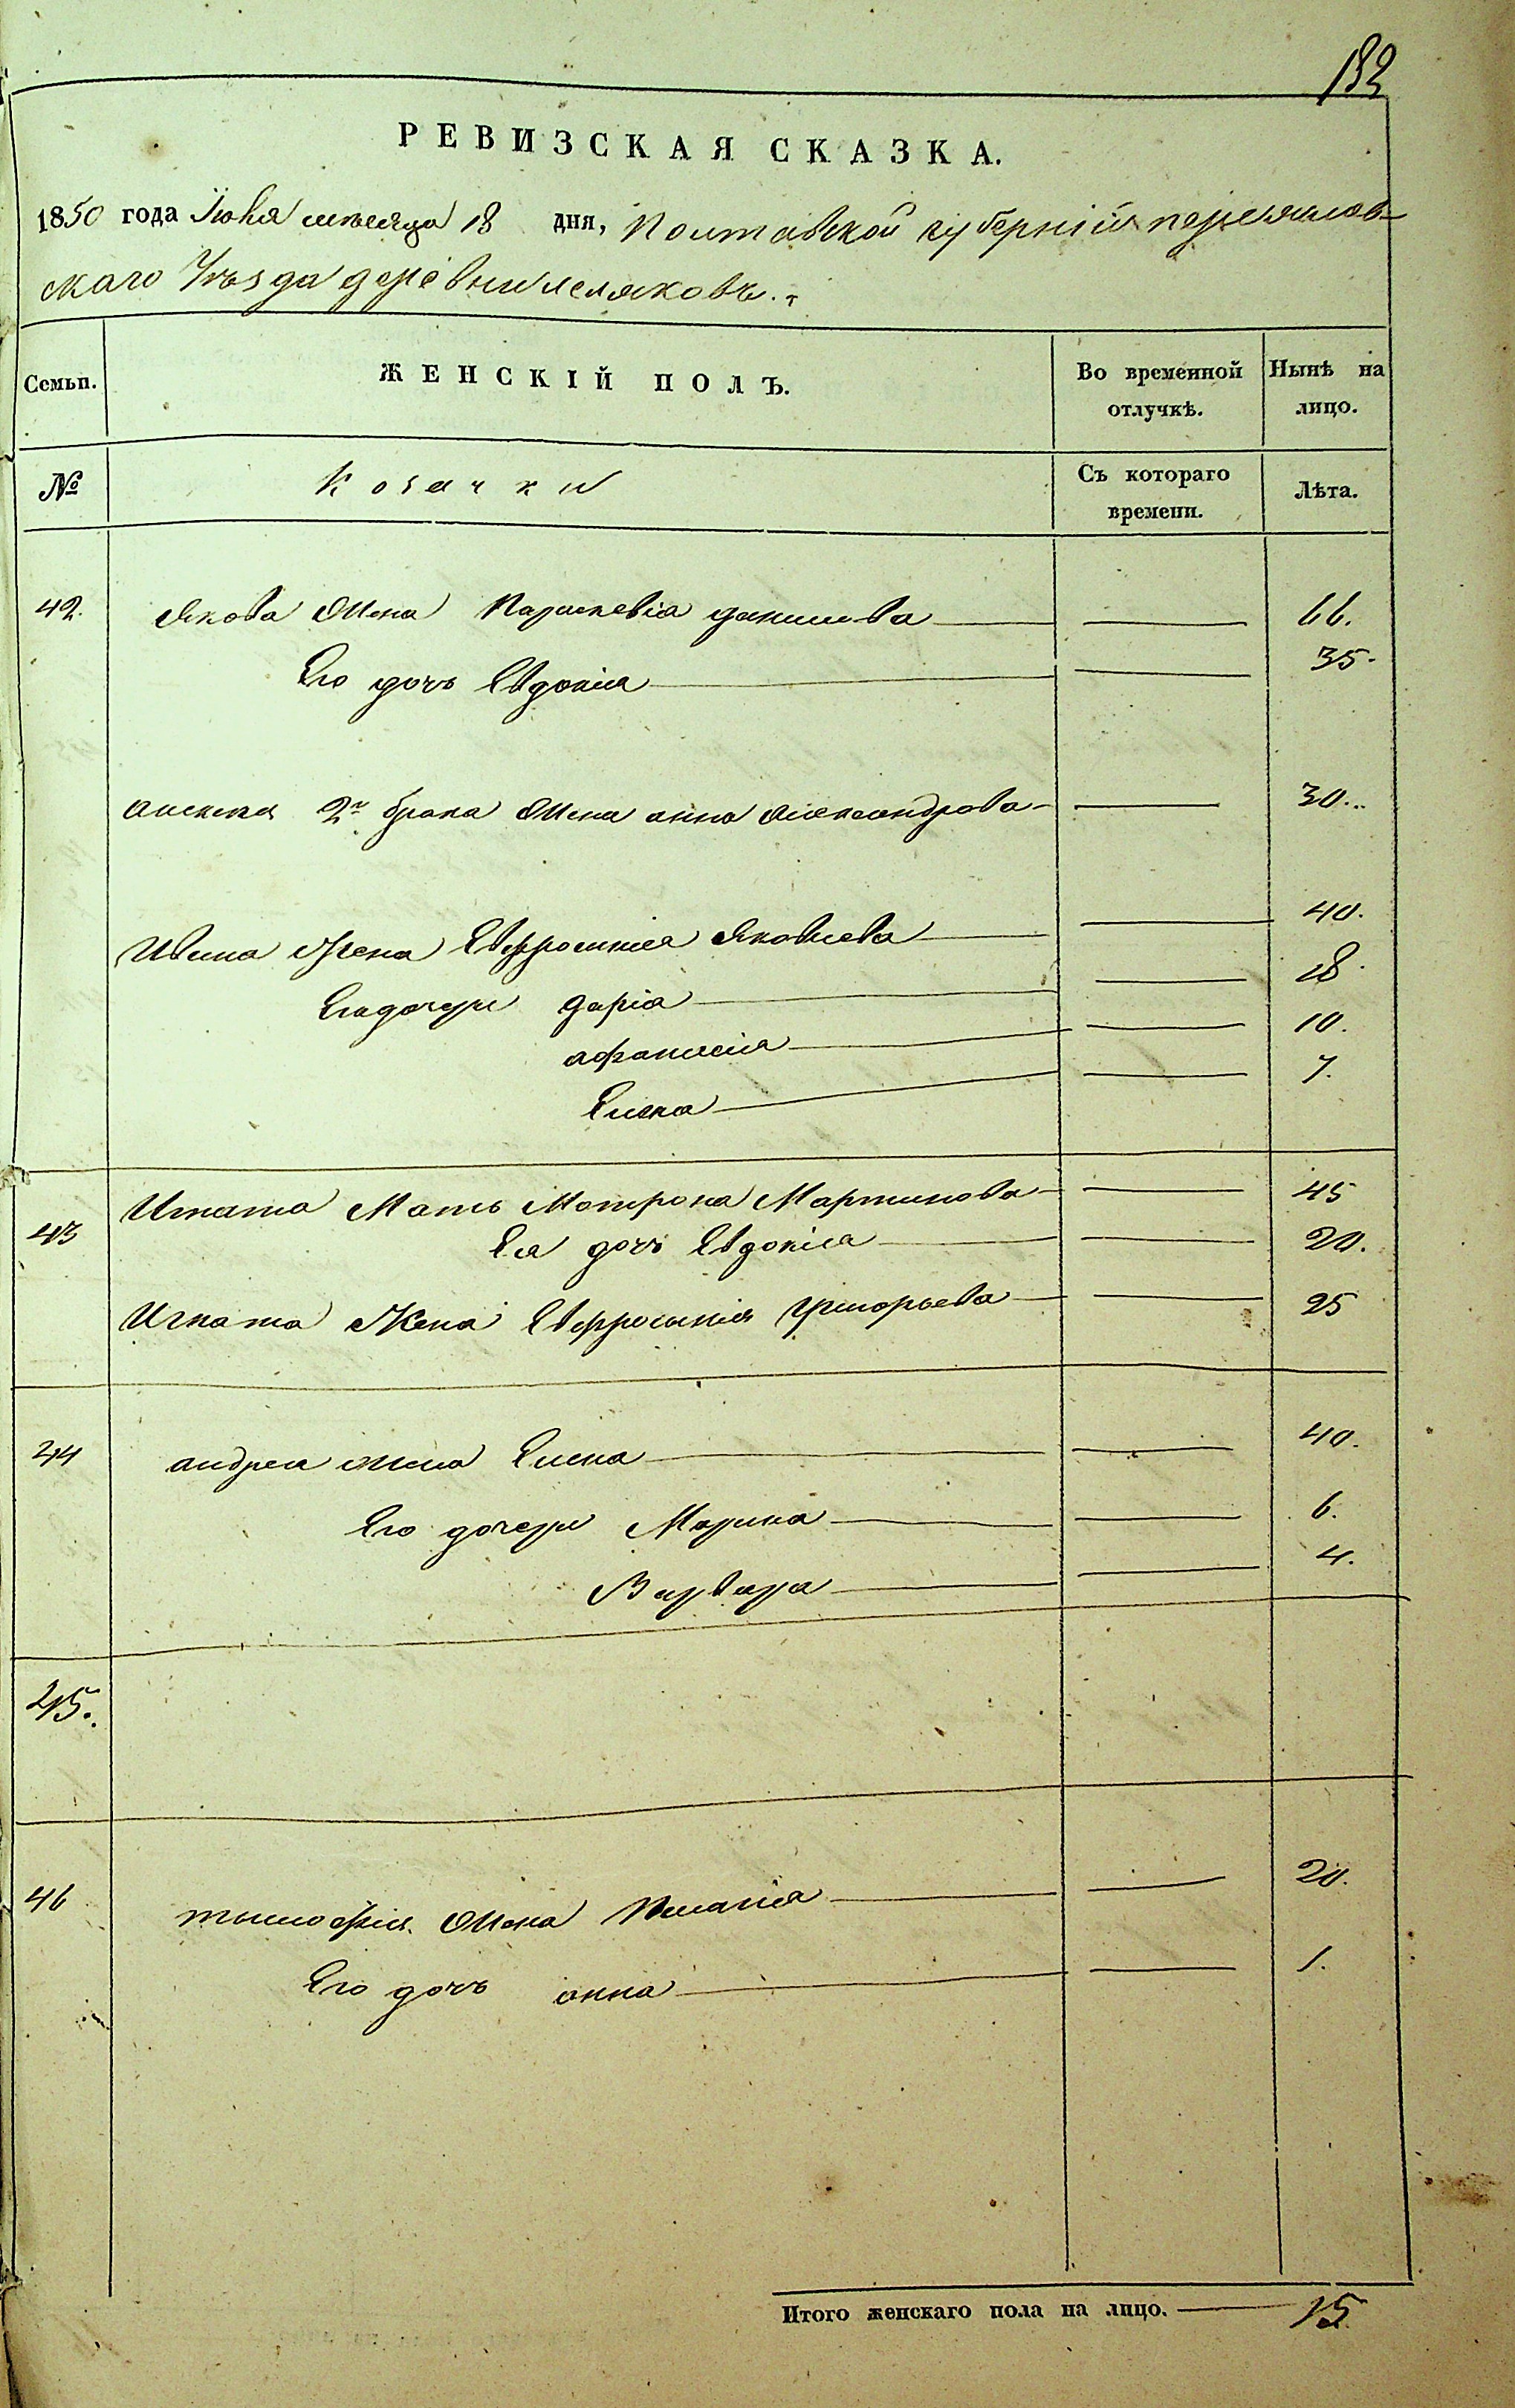 182
РЕВИЗСКАЯ СКАЗКА.
1850 года Іюня месяца 18 дня, Полтавской губерніи переяслов-
скаго Уѣзда деревни лецяковъ.
Семьи. ЖЕНСКІЙ ПОЛЪ. Во временной отлучкѣ. Нынѣ на лицо.
№ Козачки Съ котораго времени. Лѣта.
42. Якова Жена Параскевіа данилова 66.
Его дочь Евдокіа 35.
алексея 2го брака Жена анна Александрова 30.
Ивана Жена Евфросиніа Яковлева 40.
Его дочери дарія 18.
афанасиа 10.
Елена 7.
43 Игната Мать Мотрона Мартинова 45
Ея дочь Евдокіа 20.
Игната Жена Евфросинія Григорьева 25
44 андрея жена Елена 40.
Его дочери Марина 6.
Варвара 4.
45.
46 тымофѣя Жена 20.
Его дочь анна 1.
Итого женскаго пола на лицо. 15